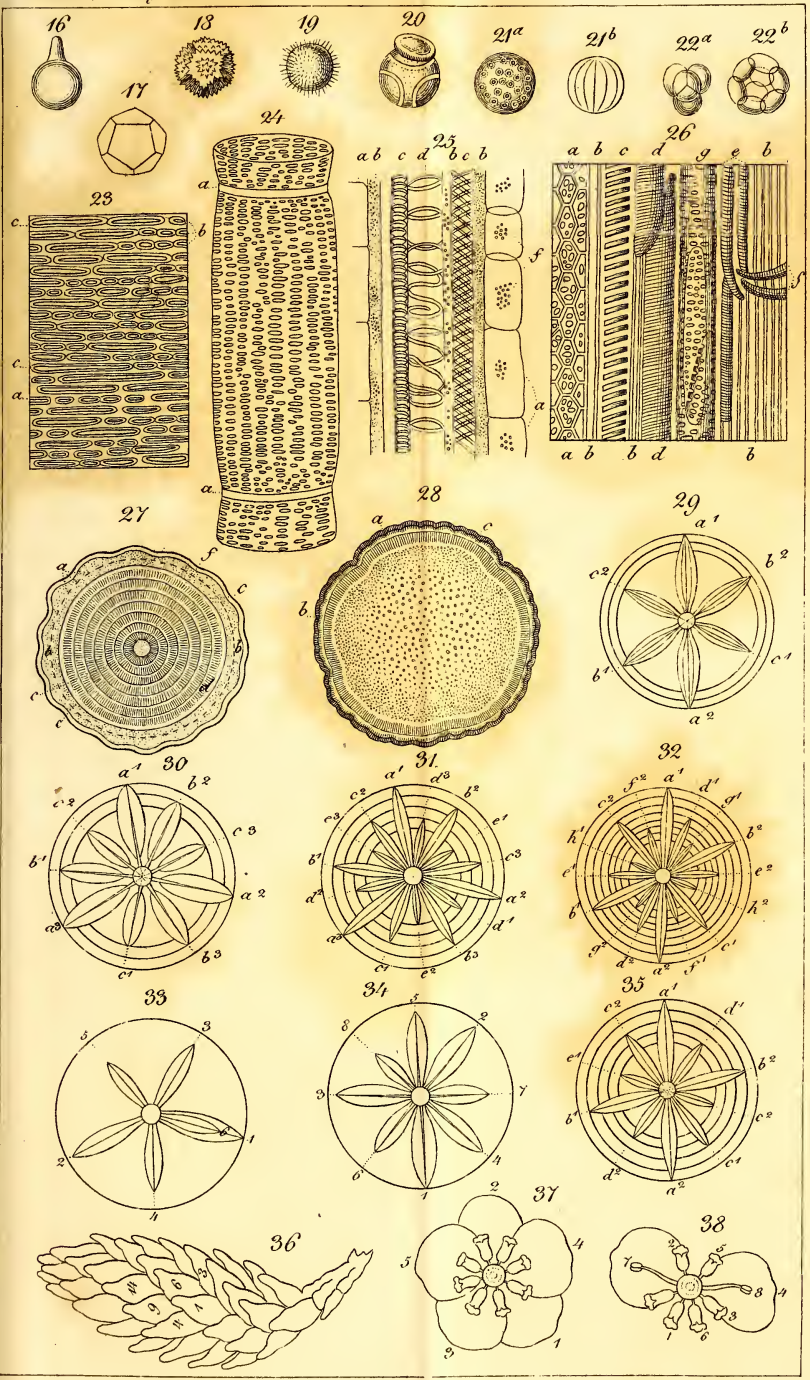 16 18 19 20 21a 21b 22a 22b
17
24
25
26
a b c d b c b
a b c d g e b
a
23
c
b
f
f
c
a
a
a b b d b
a
27
28
29
a f c b b d c c
a c b
a1 b2 c1 a2 b1 c2
30
31
32
a1 b2 c3 a2 b3 c1 a3 b1 c2
a1 d3 b2 e1 c3 a2 d1 b3 e2 c1 a3 d2 b1 e3 c2
a1 d1 g1 b2 e2 h2 c1 f1 a2 d2 g2 b1 e1 h1 c2 f2
33
34
35
5 3 6 1 4 2
5 2 7 4 1 6 3 8
a1 d1 b2 c2 c1 a2 d2 b1 e1 c2
36
37
38
3 6 1 11 9 4
2 4 1 3 5
2 5 7 8 4 3 6 1